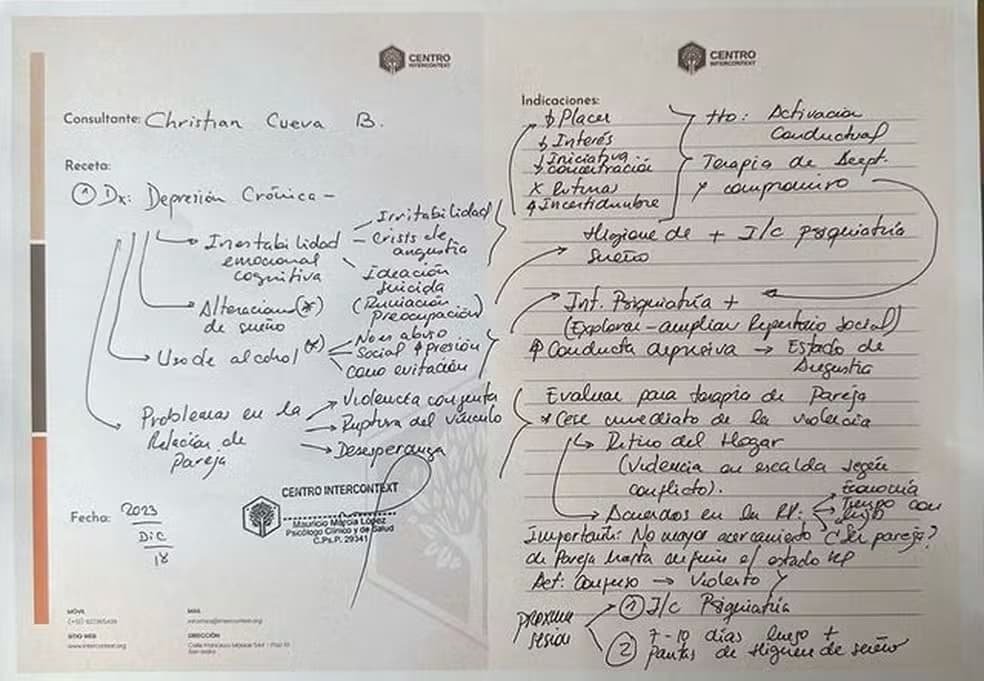 CENTRO
INTERCONTEXT
Consultante: Christian Cueva B.
Receta:
① Dx: Depresión Crónica -
→ Inestabilidad
emocional
cognitiva
Irritabilidad
Crisis de
angustia
Ideación
suicida
(Rumiación
Preocupación)
→ Alteraciones (*)
de sueño
→ Uso de alcohol (*)
No es abuso
Social ↑ presión
como evitación
Problemas en la
Relación de
Pareja
→ Violencia conjunta
→ Ruptura del vínculo
→ Desesperanza
Fecha: 2023
Dic
18
CENTRO INTERCONTEXT
Mauricio Murcia López
Psicólogo Clínico y de Salud
C.Ps.P. 29341
MÓVIL
MAIL
SITIO WEB
www.intercontext.org
DIRECCIÓN
CENTRO
INTERCONTEXT
Indicaciones:
↓ Placer
↓ Interés
↓ Iniciativa
↓ concentración
X Rutinas
↑ Incertidumbre
tto: Activación
Conductual
Terapia de Acept.
y compromiso
Higiene de + I/c psiquiatría
Sueño
→ Int. Psiquiatría +
(Explorar-ampliar Repertorio Social)
↑ Conducta depresiva → Estado de
Angustia
Evaluar para terapia de Pareja
* Cese inmediato de la violencia
→ Retiro del Hogar
(Violencia en escalda según
conflicto).
→ Acuerdos en la RP:
→ Economía
→ Tiempo con
Importante: No mayor acercamiento
¿Ser pareja?
de Pareja hasta definir el estado RP
Act: Confuso → Violento y
proxima
sesión
① I/c Psiquiatría
② 7-10 días luego +
Pautas de Higiene de sueño